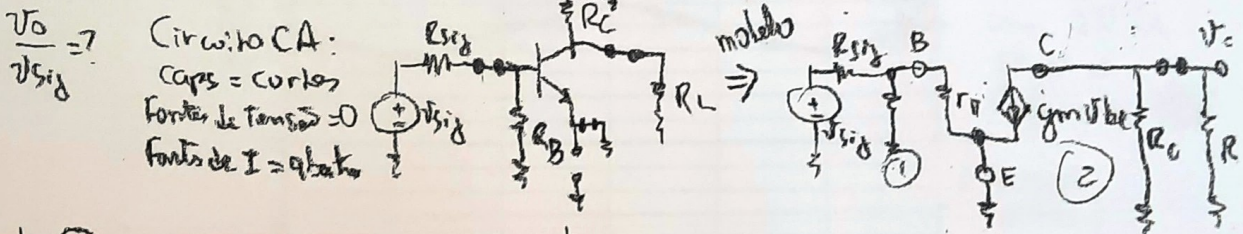 vo
vsig
=?
Circuito CA:
caps = curtos
Fontes de Tensão = 0
Fontes de I = aberto
Rsig
+
vsig
RB
RC
RL
modelo
⇒
Rsig
B
+
vsig
1
rπ
E
C
gmvbe
2
RC
R